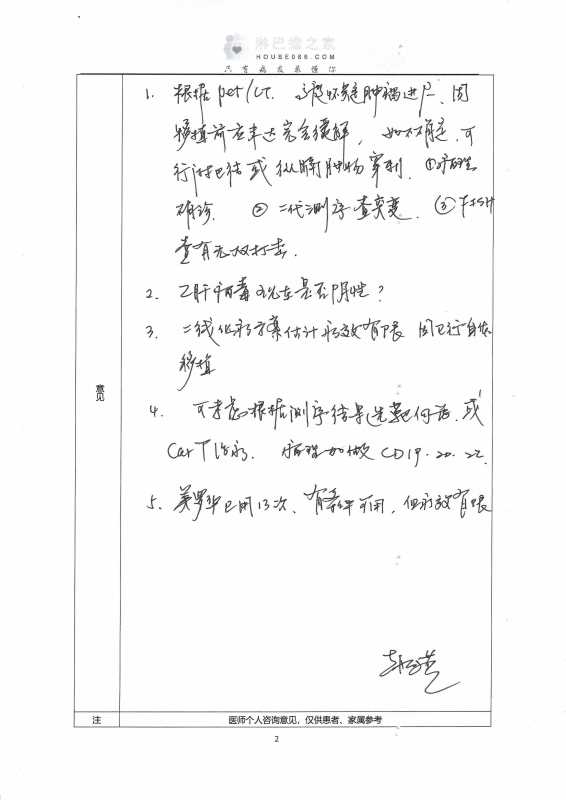 淋巴瘤之家
HOUSE086.COM
只有病友最懂你
1. 根据pet/CT. 高度怀疑肿瘤进尸、因
移植前应未达完全缓解, 如不确定, 可
行淋巴结或纵隔肿物穿刺. ①病理
确诊. ②二代测序查突变. ③FISH
查有无双打击.
2. 乙肝病毒现在是否阴性?
3. 二线化疗方案估计疗效有限 因已行自体
移植
4. 可考虑根据测序结果选靶向药. 或
CarT治疗. 病理加做CD19.20.22.
5. 美罗华已用13次、有条件可用, 但疗效有限
意见
注 医师个人咨询意见,仅供患者、家属参考
2